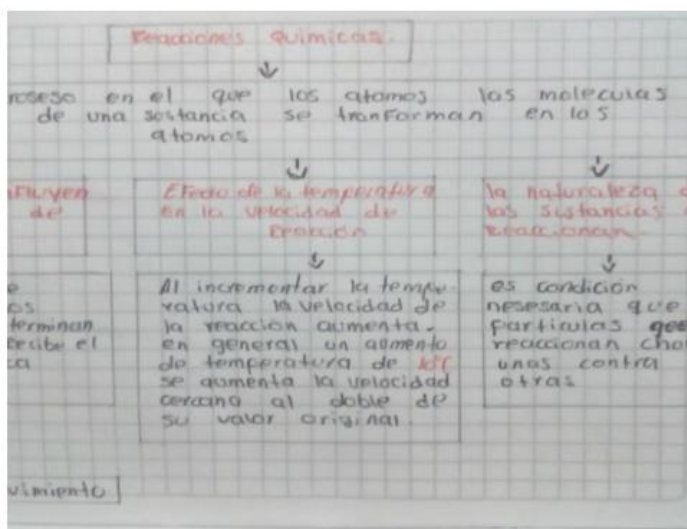 Reacciones quimicas.
roseso en el que los atomos las moleculas
de una sostancia se tranforman en los
atomos
influyen
de
Efecto de la temperatura
en la velocidad de
la naturaleza
las sistancias
reaccionan
e
os
terminan
recibe el
ca
Al incrementar la tempe-
ratura la velocidad de
la reacción aumenta.
en general un aumento
de temperatura de
se aumenta la velocidad
cercano al doble de
su valor original.
es condición
nesesaria que
particulas que
reaccionan cho
unas contra
otras
vimiento